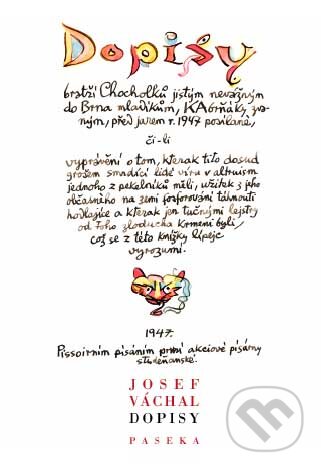 Dopisy
bratří Chocholků jistým nevážným
do Brna mladíkům, KAbrňáky zva-
ným, před jarem r. 1947 posílané,
či-li
vyprávění o tom, kterak tito dosud
grošem smrdící lidé víru v altruism
jednoho z pekelníků měli, užitek z jeho
občasného na zemi fosforování táhnouti
hodlajíce a kterak jen tučnými lejstry
od toho zloducha krmeni byli,
což se z této knížky lépeje
vyrozumí.
1947.
Pissoirním písáním první akciové písárny
studeňanské.
JOSEF
VÁCHAL
DOPISY
PASEKA
m